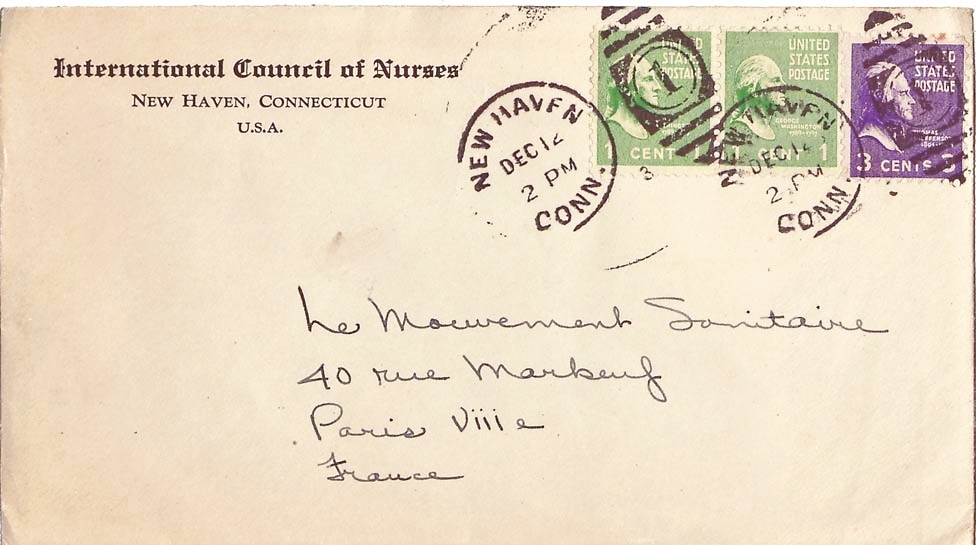 International Council of Nurses
New Haven, Connecticut
U.S.A.
NEW HAVEN
DEC 12
2 PM
CONN.
3
UNITED
STATES
POSTAGE
1 CENT 1
NEW HAVEN
DEC 12
2 PM
CONN.
UNITED
STATES
POSTAGE
GEORGE
WASHINGTON
1 CENT 1
UNITED
STATES
POSTAGE
THOMAS
JEFFERSON
3 CENTS 3
1
Le Mouvement Sanitaire
40 rue Markeuf
Paris Viii e
France